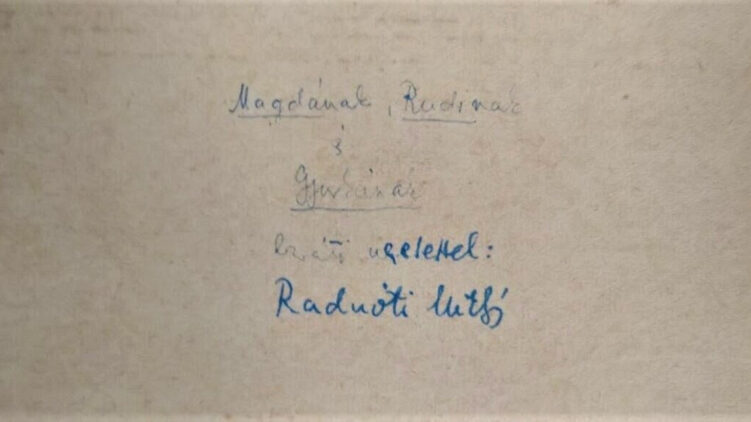 Magdának, Rudinak
s
Gyurkának
baráti szeretettel:
Radnóti Miklós